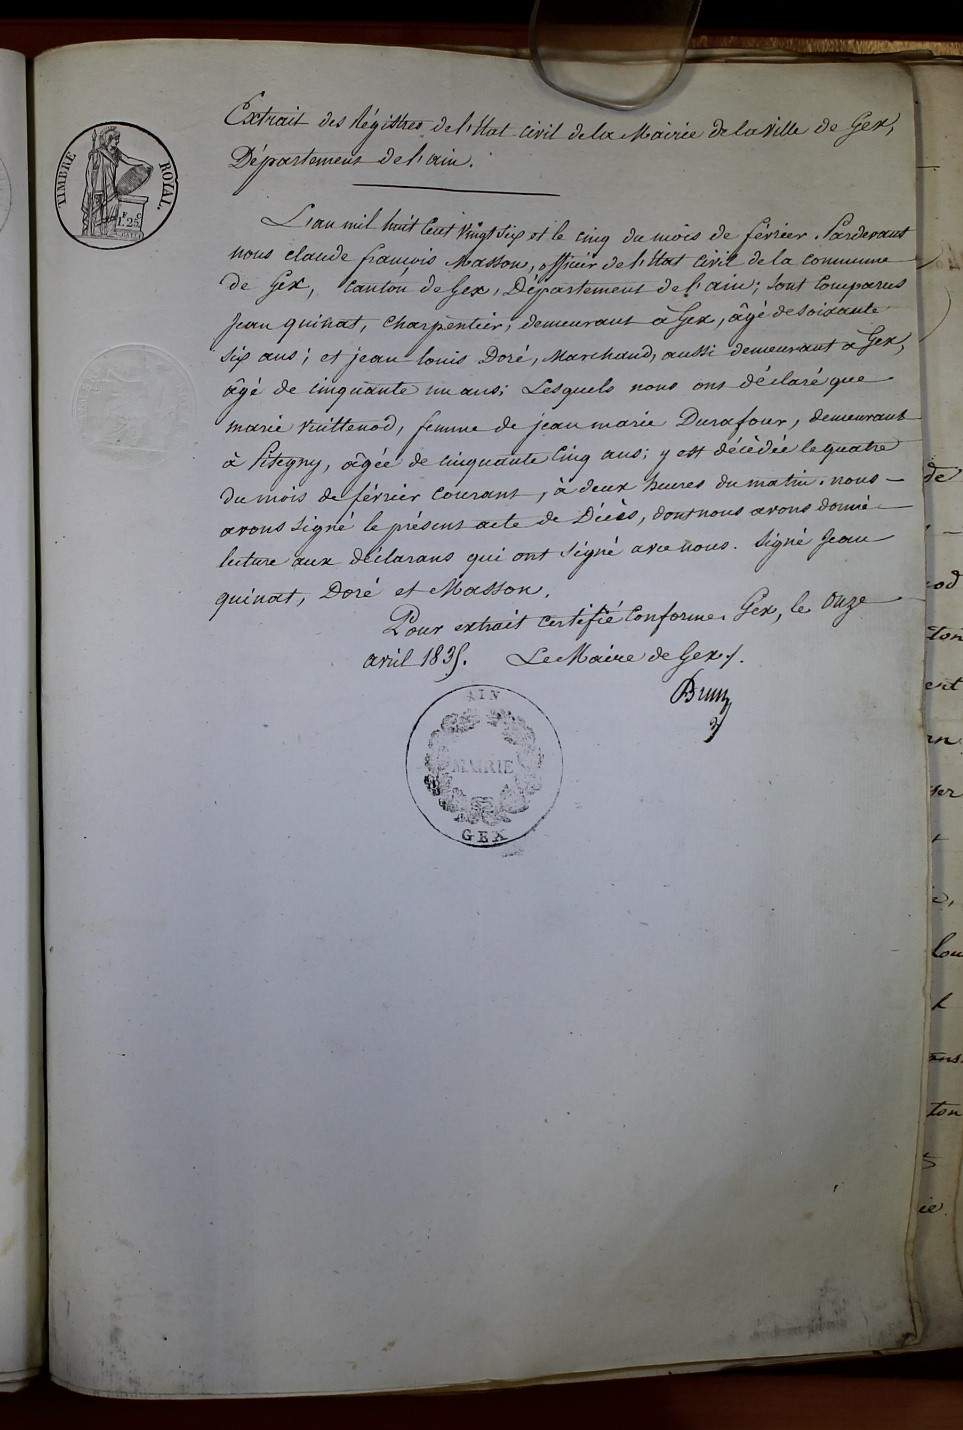 TIMBRE ROYAL.
1.F 25C
Extrait des Régistres de l'Etat civil de la Mairie de la Ville de Gex,
Département de l'ain.
L'an mil huit Cent vingt Six et le cinq du mois de février. Pardevant
nous claude françois Masson, officier de l'Etat civil de la commune
de Gex, canton de Gex, Département de l'ain; sont comparus
jean quinat, charpentier, demeurant a Gex, âgé de soixante
Six ans; et jean louis Doré, Marchand, aussi demeurant a Gex,
âgé de cinquante un ans; Lesquels nous ont déclaré que
marie Vuittenod, femme de jean marie Durafour, demeurant
à Pitegny, âgée de cinquante Cinq ans; y est décèdée le quatre
du mois de février courant, à deux heures du matin. nous
avons Signé le présent acte de Décès, dont nous avons donné
lecture aux déclarans qui ont Signé avec nous. Signé Jean
quinat, Doré et Masson.
Pour extrait certifié Conforme. Gex, le Onze
avril 1835. Le Maire de Gex.
AIN
MAIRIE
GEX
de
od
ton
ent
ton